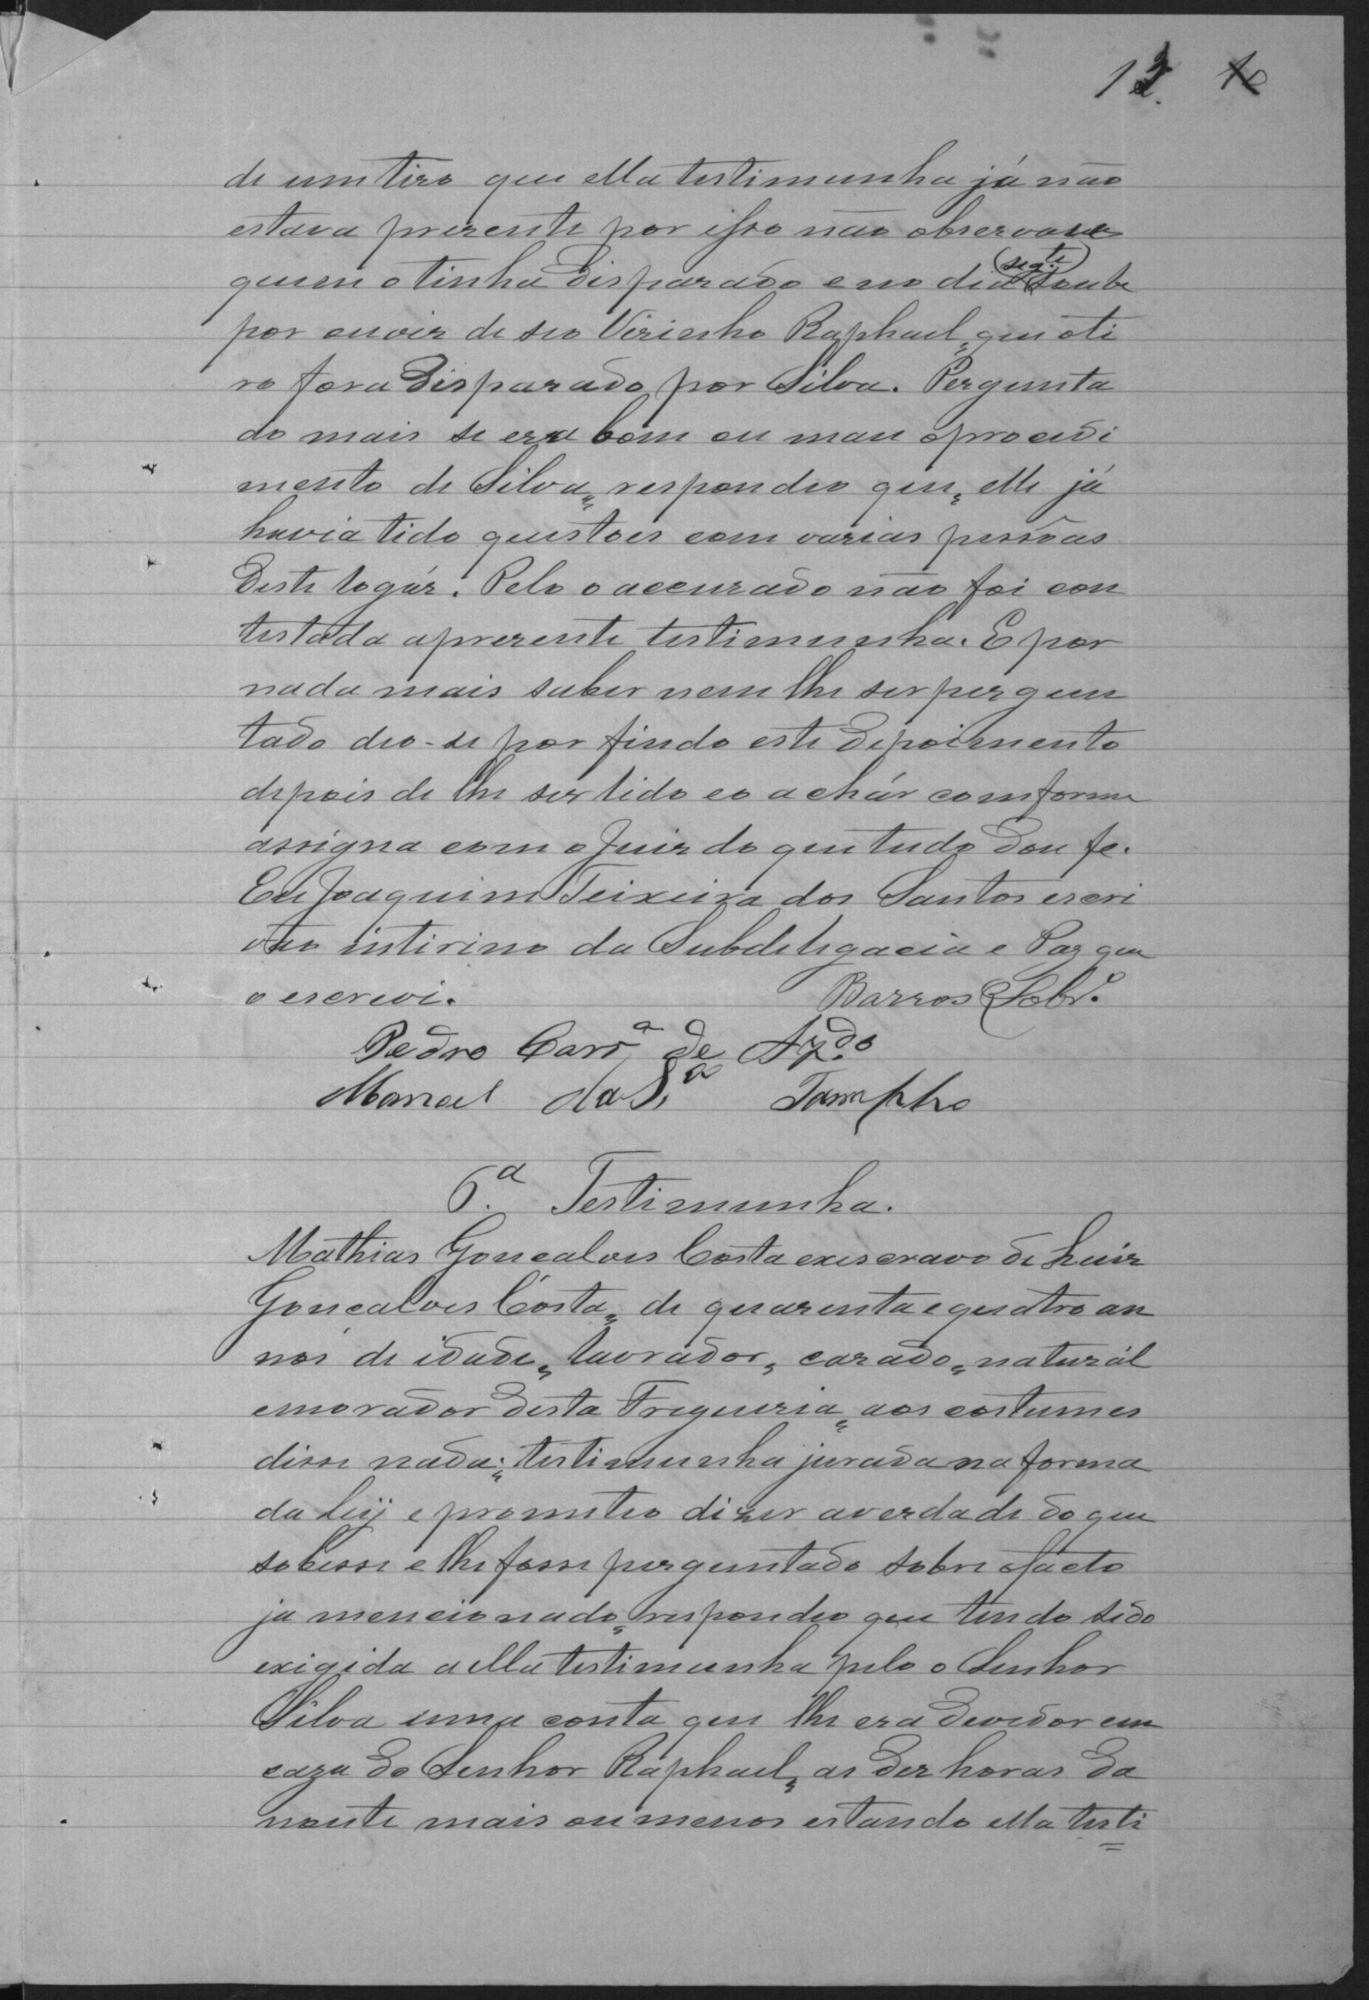 12. 10
de um tiro que ella testimunha já não
estava prezente por isso não observase
quem o tinha disparado e no dia (segte) soube
por ouvir de seo Vizinho Raphael, que o ti
ro fora disparado por Silva. Pergunta
do mais se era bom ou mau o procedi
mento de Silva, respondeo que, elle já
havia tido questões com varias pessôas
deste logár. Pelo o accuzado não foi con
testada a prezente testimunha. E por
nada mais saber nem lhe ser pergun
tado deo-se por findo este depoimento
depois de lhe ser lido e o achár comforme
assigna com o Juiz do que tudo dou fe.
Eu Joaquim Teixeira dos Santos escri
vão intirino da Subdelegacia e Paz que
o escrevi. Barros Sobro.
Pedro Carra de Azdo.
Manoel da Sa
6.a Testimunha.
Mathias Goncalves Costa exescravo de Luiz
Gonçalves Costa, de quarenta e quatro an
nos de idade, lavrador, cazado, naturál
e morador desta Freguezia, aos costumes
disse nada; testimunha jurada na forma
da leij e prometeo dizer a verdade do que
sobesse e lhe fosse perguntado sobre o facto
ja mencionado, respondeo que tendo sido
exigida a ella testimunha pelo o Senhor
Silva uma conta que lhe era devedor em
caza do Senhor Raphael, as dez horas da
noute mais ou menos estando ella testi